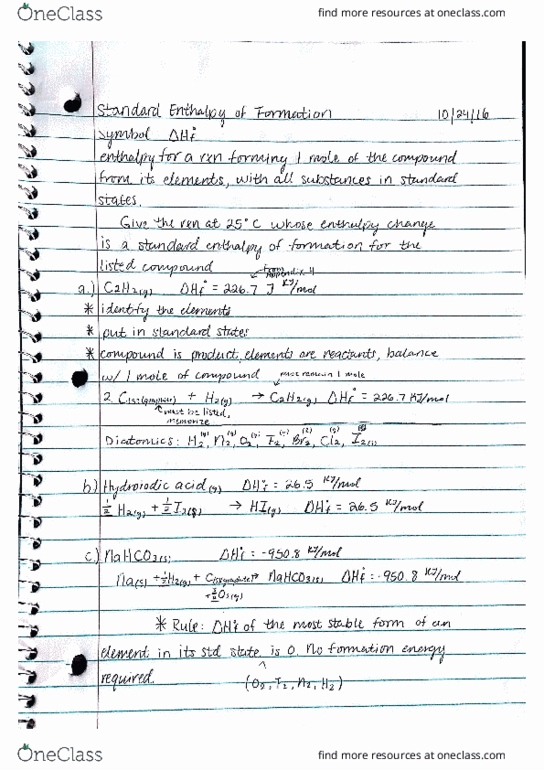 OneClass
find more resources at oneclass.com
Standard Enthalpy of Formation 10/24/16
symbol ΔHf°
enthalpy for a rxn forming 1 mole of the compound
from its elements, with all substances in standard
states.
Give the rxn at 25°C whose enthalpy change
is a standard enthalpy of formation for the
listed compound
a.) C2H2(g) ΔHf° = 226.7 KJ/mol
* identify the elements
* put in standard states
* compound is product, elements are reactants, balance
w/ 1 mole of compound must remain 1 mole
2 C(s)(graphite) + H2(g) → C2H2(g) ΔHf° = 226.7 KJ/mol
must be listed,
memorize
Diatomics: H2(g), N2(g), O2(g), F2(g), Br2(l), Cl2(g), I2(s)
b.) Hydroiodic acid(g) ΔHf° = 26.5 KJ/mol
1/2 H2(g) + 1/2 I2(s) → HI(g) ΔHf° = 26.5 KJ/mol
c.) NaHCO3(s) ΔHf° = -950.8 KJ/mol
Na(s) + 1/2 H2(g) + C(s)(graphite) → NaHCO3(s) ΔHf° = -950.8 KJ/mol
+ 3/2 O2(g)
* Rule: ΔHf° of the most stable form of an
element in its std state is 0. No formation energy
required. (O2, I2, N2, H2)
OneClass
find more resources at oneclass.com